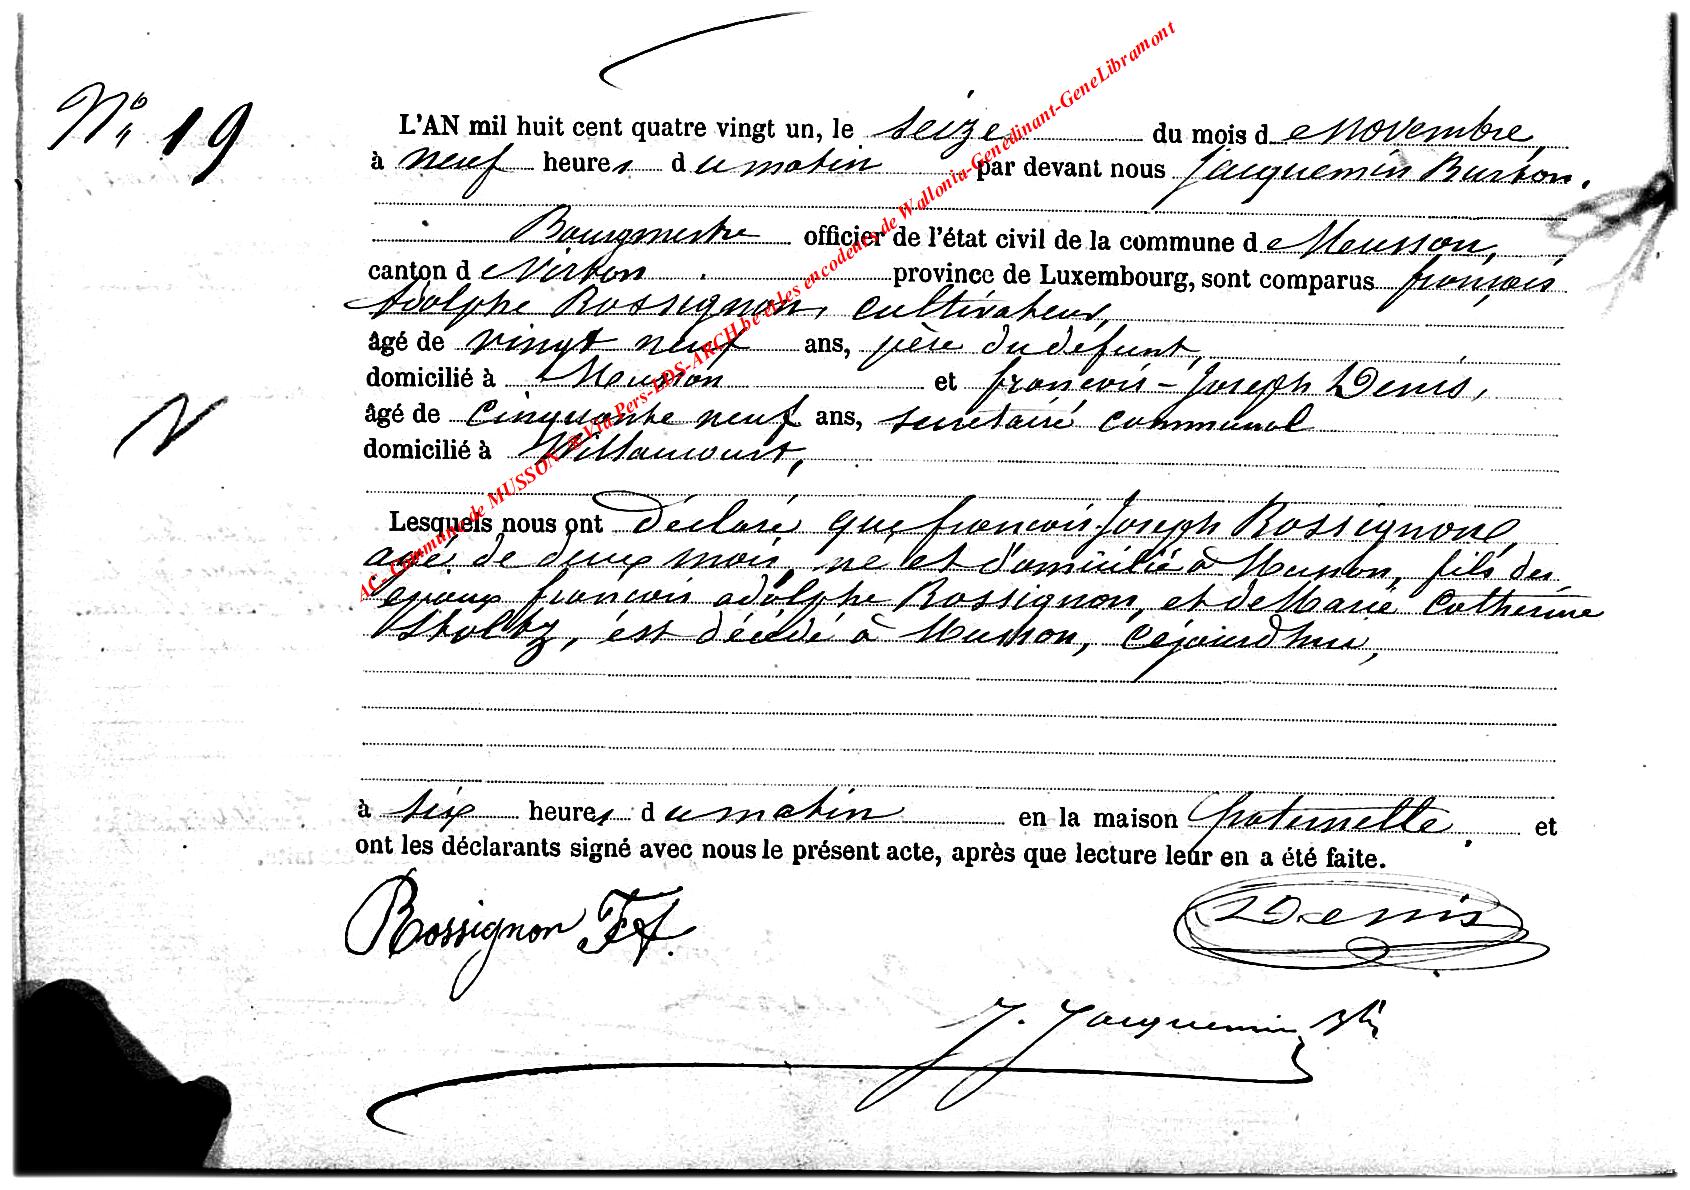 N° 19
L'AN mil huit cent quatre vingt un, le seize du mois de Novembre,
à neuf heures du matin par devant nous Jacquemin Burton.
Bourgmestre officier de l'état civil de la commune de Musson,
canton de Virton. province de Luxembourg, sont comparus françois
Adolphe Rossignon, cultivateur,
âgé de vingt neuf ans, père du défunt,
domicilié à Musson et françois-Joseph Denis,
âgé de cinquante neuf ans, secrétaire communal
domicilié à Willancourt,
Lesquels nous ont déclaré que françois-Joseph Rossignon,
agé de deux mois, né et domicilié à Musson, fils des
époux françois adolphe Rossignon, et de Marie Catherine
Stoltz, est décédé à Musson, cejourdhui,
à six heures du matin en la maison paternelle et
ont les déclarants signé avec nous le présent acte, après que lecture leur en a été faite.
Rossignon F A.
Denis
J. Jacquemin
AC- Commune de MUSSON & Via Pers-LDS-ARCH be et les encodeurs de Wallonia-Genedinant-GeneLibramont